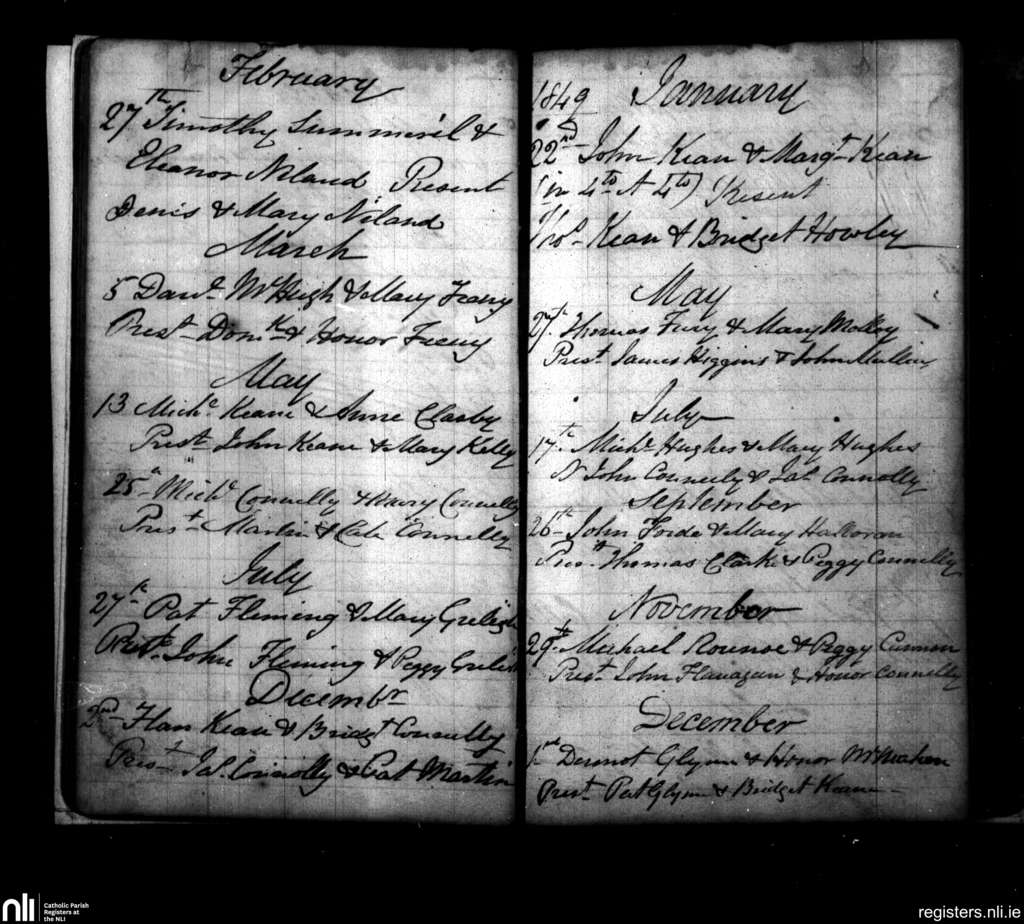 February
27th Timothy Summeril &
Eleanor Niland Present
Denis & Mary Niland
March
5 Danl McHugh & Mary Feeny
Prest Domk & Honor Feeny
May
13 Michl Keane & Anne Clasby
Prest John Keane & Mary Kelly
25th Michl Connelly & Connelly
Prest Martin & Cate Connelly
July
27th Pat Fleming & Mary
Prest John Fleming & Peggy
Decembr
2nd Flan Kean & Bridgt Connelly
Prest Jas Connolly & Pat Martin
1849 January
22nd John Kean & Margt Kean
(in 4to A 4to) Present
Thos Kean & Bridget Howley
May
27th Thomas Fury & Mary Molloy
Prest James Higgins & John Mullin
July
17th Michl Hughes & Mary Hughes
John Conneely & Jas Connolly
September
26th John Forde & Mary Halloran
Prest Thomas Clarke & Peggy Connelly
November
29th Michael & Peggy Cunnen
Prest John Flanagan & Honor Connelly
December
Dermot Glynn & Honor
Prest Pat Glynn & Bridget Keane
nli
Catholic Parish
Registers at
the NLI
registers.nli.ie